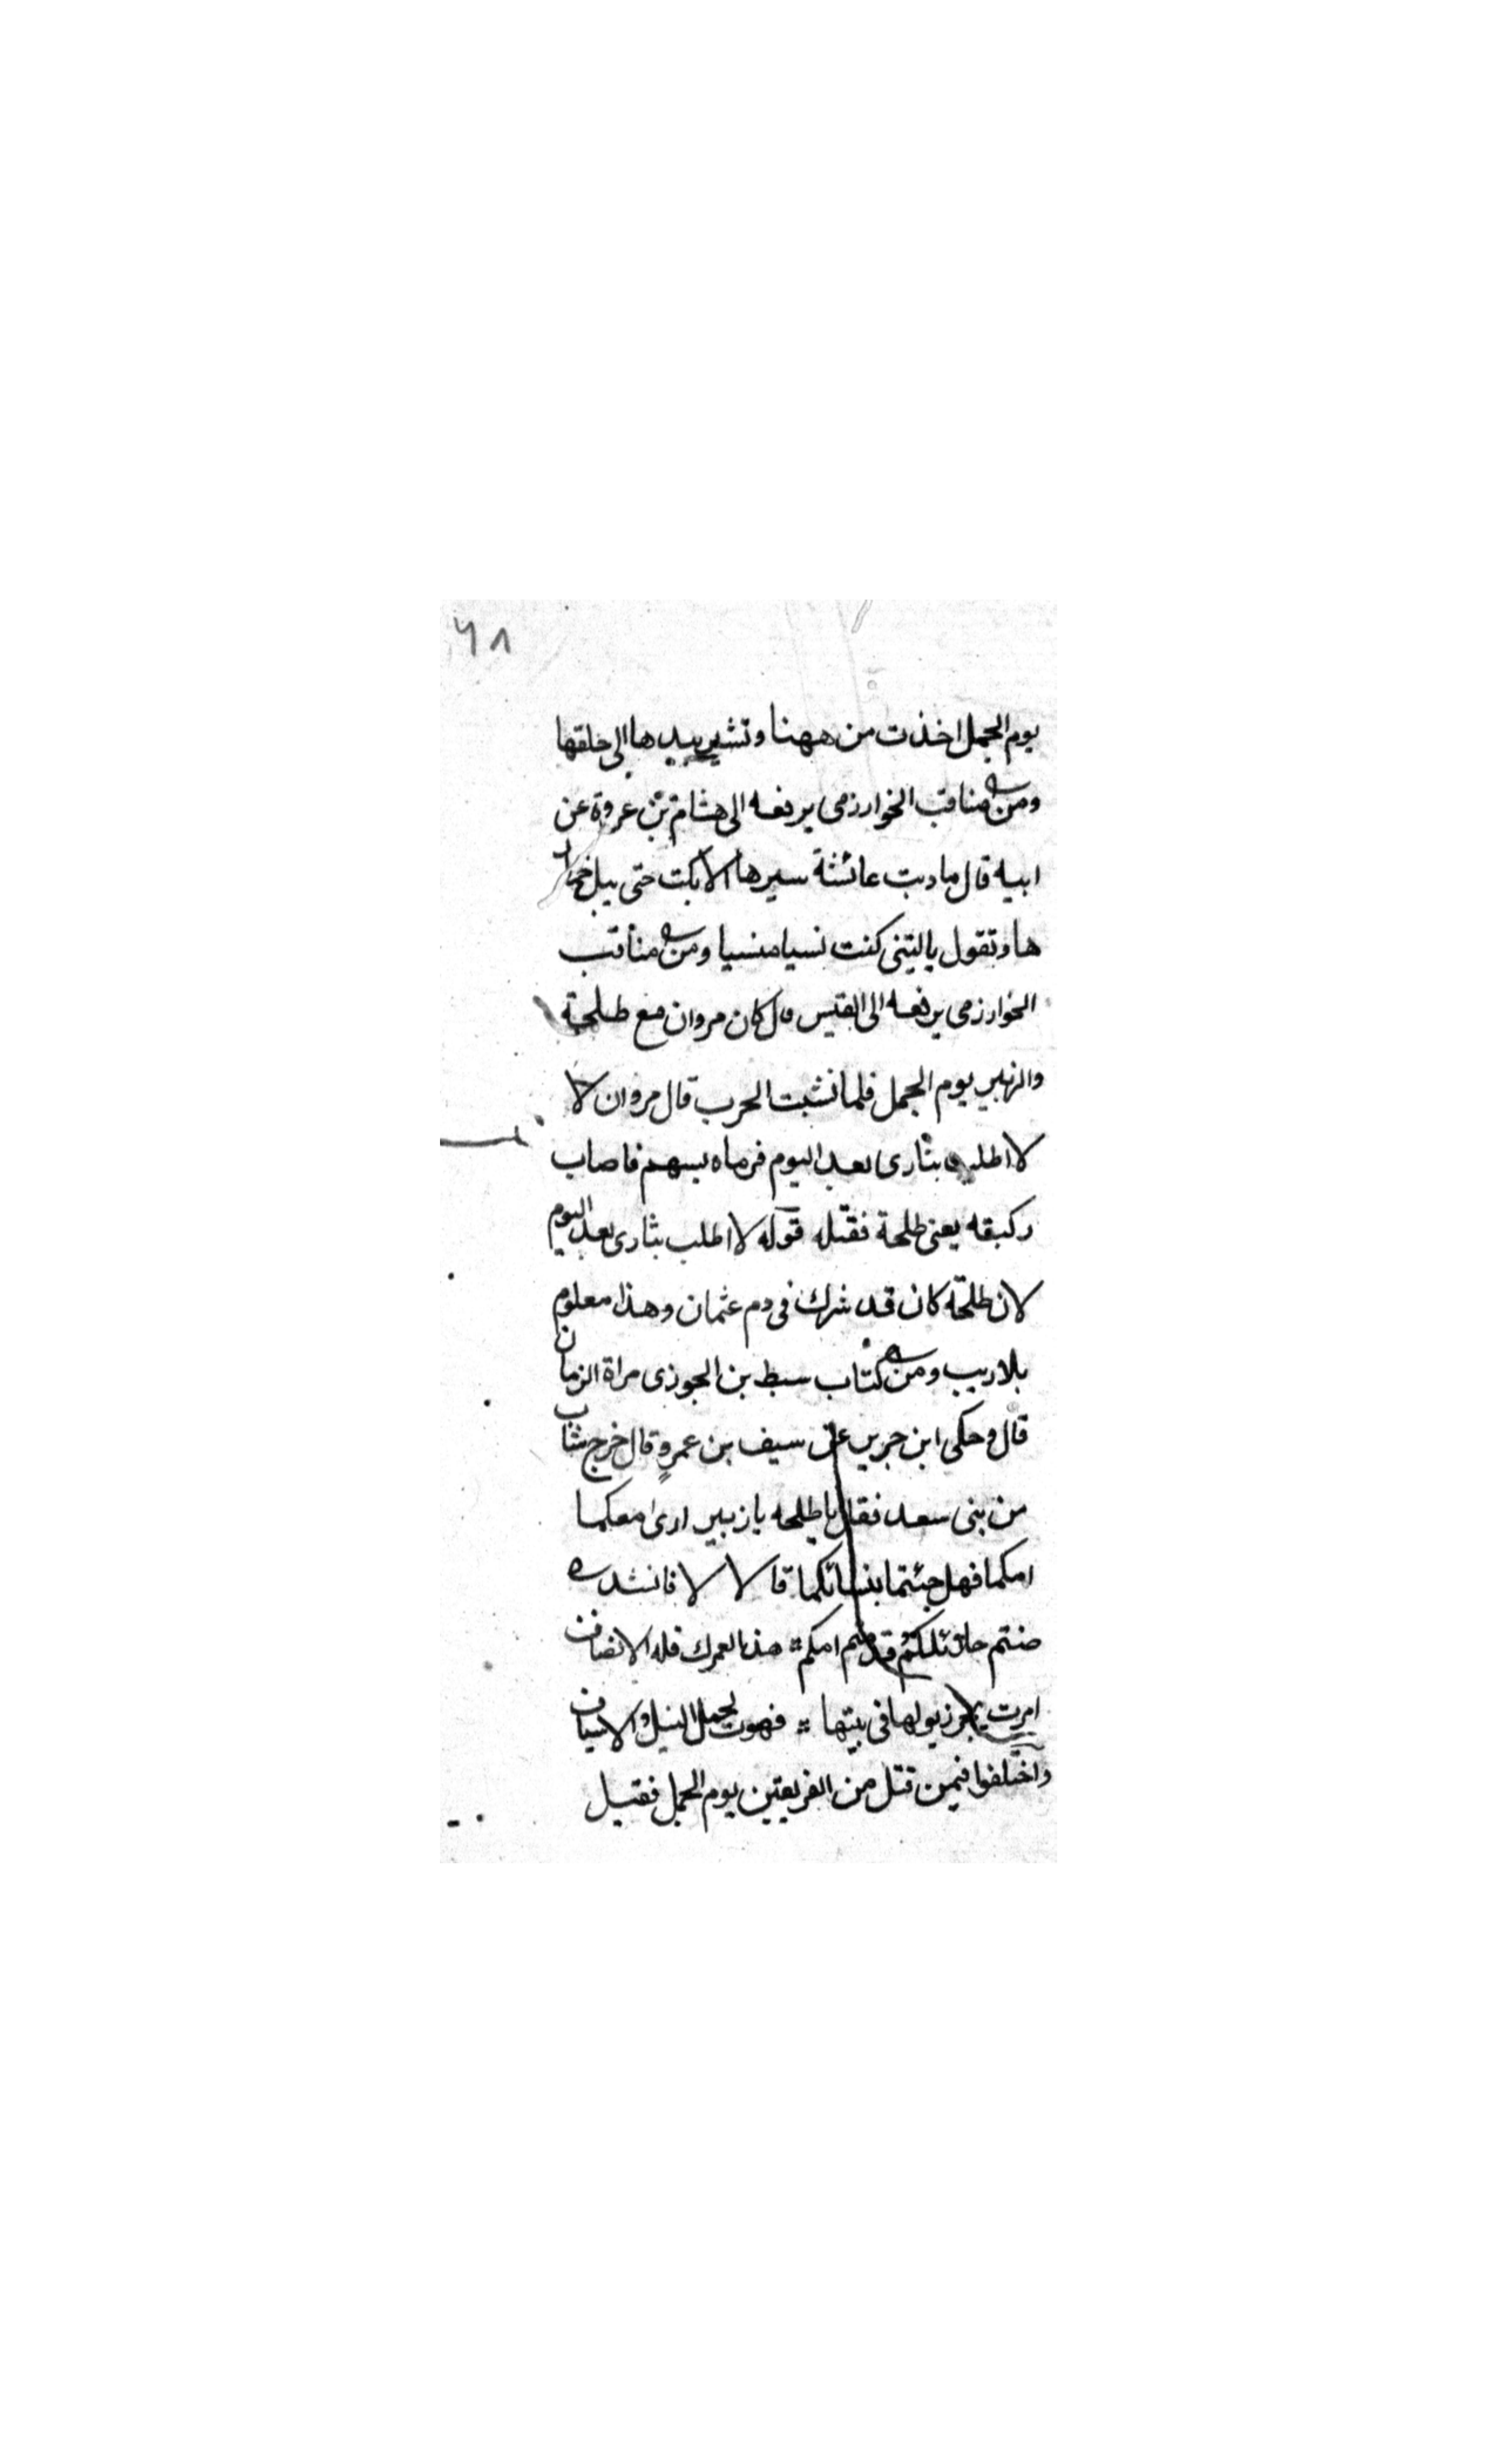 ٦٨
يوم الجمل اخذت من ههنا وتشير بيدها الى حلقها
ومن مناقب الخوارزمى يرفعه الى هشام بن عروة عن
ابيه قال ما دبت عائشة سيرها الا بكت حتى يبل خمار
ها وتقول ياليتنى كنت نسيا منسيا ومن مناقب
الخوارزمى يرفعه الى القيس قال كان مروان مع طلحة
والزبير يوم الجمل فلما نشبت الحرب قال مروان لا
لا اطلب بثارى بعد اليوم فرماه بسهم فاصاب
ركبته يعنى طلحة فقتله قوله لا اطلب بثارى بعد اليوم
لان طلحة كان قد شرك فى دم عثمان وهذا معلوم
بلا ريب ومن كتاب سبط بن الجوزى مراة الزمان
قال وحكى ابن جرير عن سيف بن عمرو قال خرج شاب
من بنى سعد فقال يا طلحه يا زبير ارى معكما
امكما فهل جئتما بنسائكما قالا لا فانشد
صنتم حلائلكم وقدتم امكم هذا لعمرك قله الانصاف
امرت بجر ذيولها فى بيتها فهوت لحمل النبل والاسياف
واختلفوا فيمن قتل من الفريقين يوم الجمل فقيل